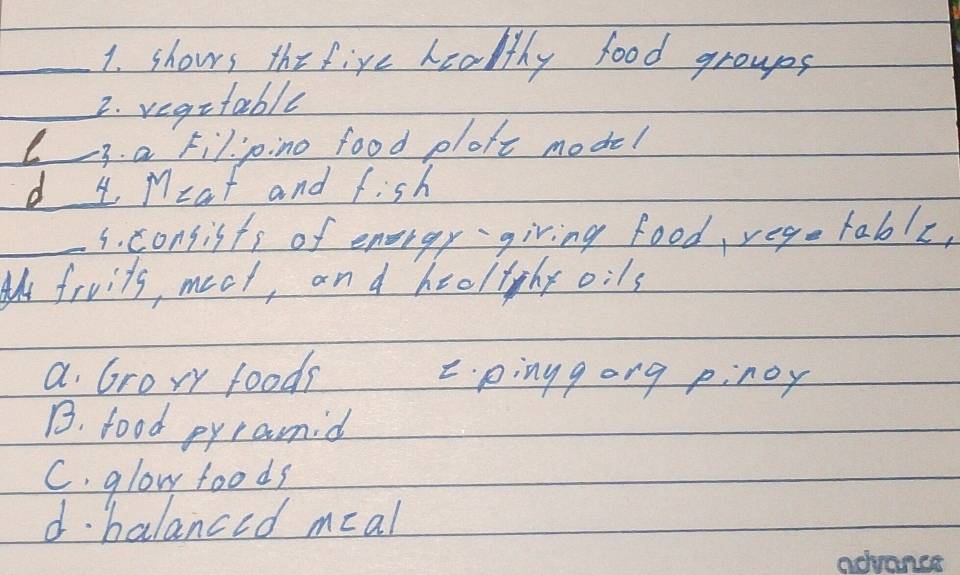 1. shows the five healthy food groups
2. vegetable
3. a Filipino food plate model
d 4. Meat and fish
5. consists of energy-giving food, vegetable,
fruits, meat, and healthy oils
a. Grow foods e. pinggang pinoy
B. food pyramid
C. glow foods
d. balanced meal
advance